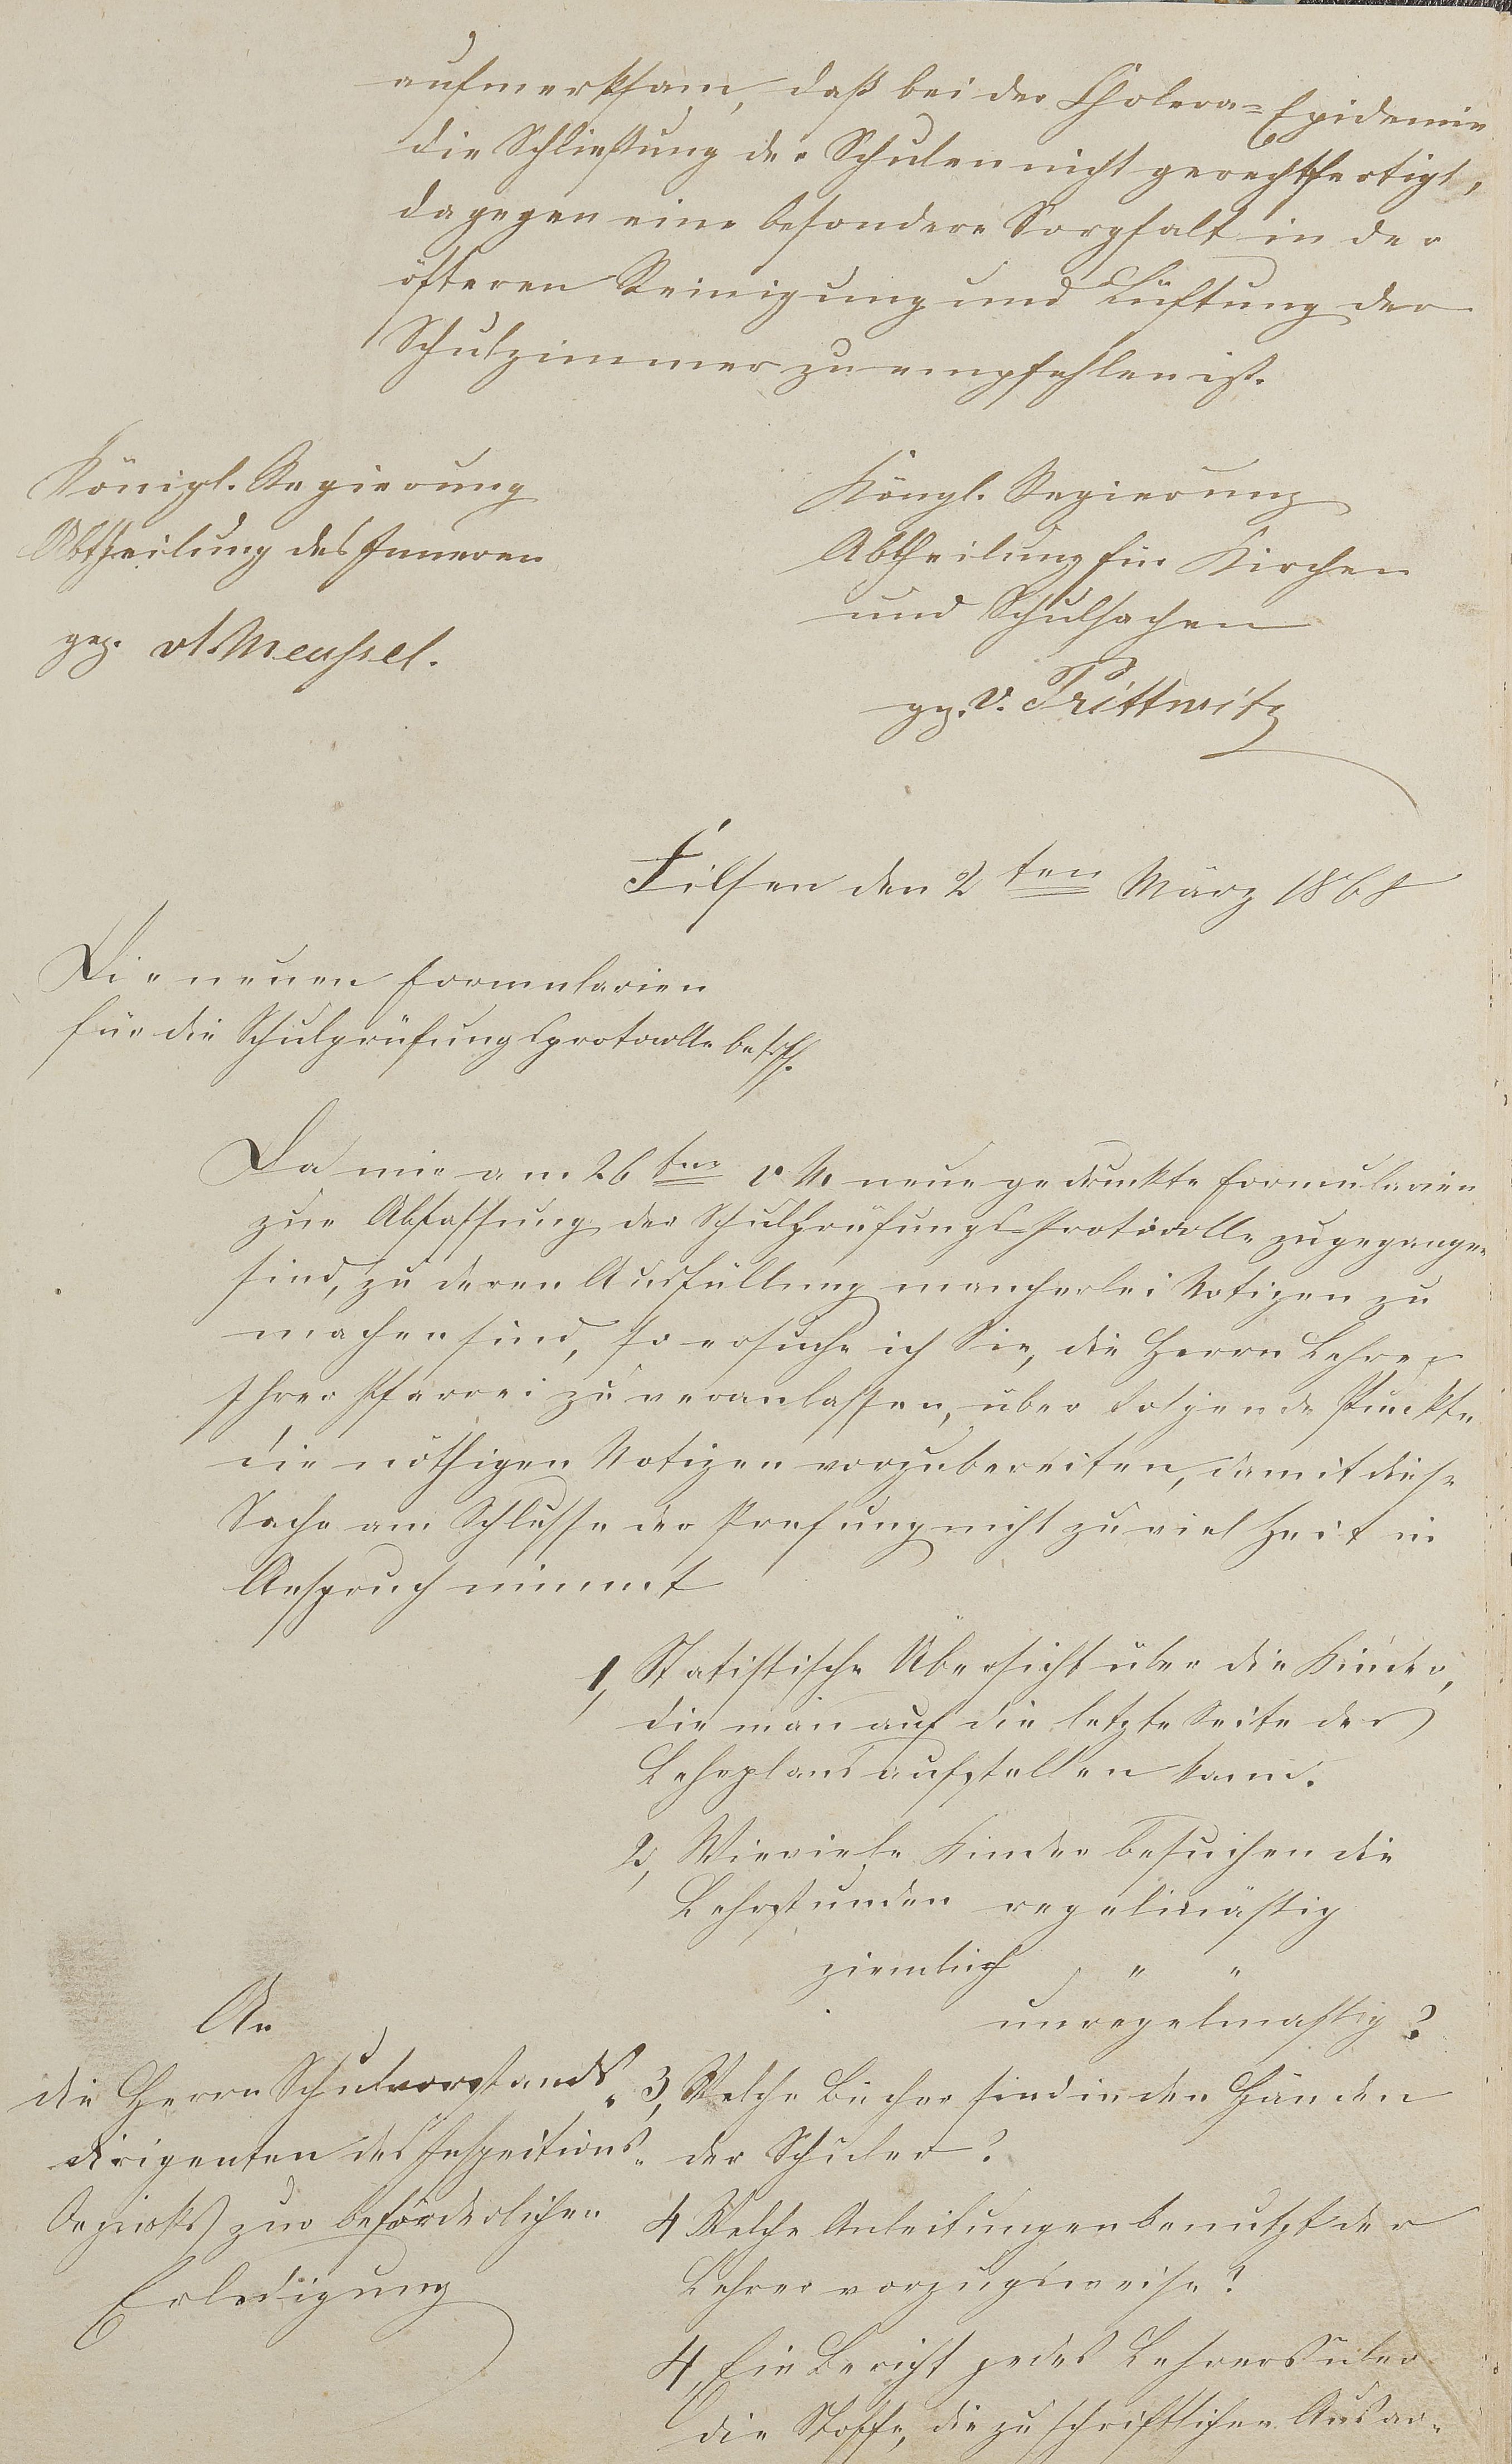 aufmerksam, daß bei der Cholera=Epidemie
die Schließung der Schulen nicht gerechtfertigt,
dagegen eine besondere Sorgfalt in der
öfteren Reinigung und Lüftung der
Schulzimmer zu empfehlen ist.
Königl. Regierung
Abtheilung des Inneren
gez.
Köngl. Regierung
Abtheilung für Kirchen
und Schulsachen
gez. v. Prittwitz
Filsen den 2ten März 1868
Die neuen Formularien
für die Schulprüfungsprotocolle betff.
Da mir am 26ten v. M. neue gedruckte Formularien
zur Abfassung der Schulprüfungs-Protocolle zugegangen
sind, zu deren Ausfüllung mancherlei Notizen zu
machen sind, so ersuche ich Sie, die Herrn Lehrer
Ihrer Pfarrei zu veranlassen, über folgende Punkte
die nöthigen Notizen vorzubereiten, damit diese
Sache am Schlusse der Prufung nicht zu viel Zeit in
Anspruch nimmt
1, Statistische Übersicht über die Kinder,
die man auf die letzte Seite des
Lehrplans aufstellen kann.
2, Wieviele Kinder besuchen die
Lehrstunden regelmäßig
ziemlich " "
unregelmaßig?
3, Welche Bücher sind in den Händen
der Schüler?
4 Welche Anleitungen benutzt der
Lehrer vorzugsweise?
4, Ein Bericht jedes Lehrers über
die Stoffe, die zu schriftlichen Ausar-
An
die Herrn Schulvorstands-
dirigenten des Inspections-
Bezirks zur beförderlichen
Erledigung